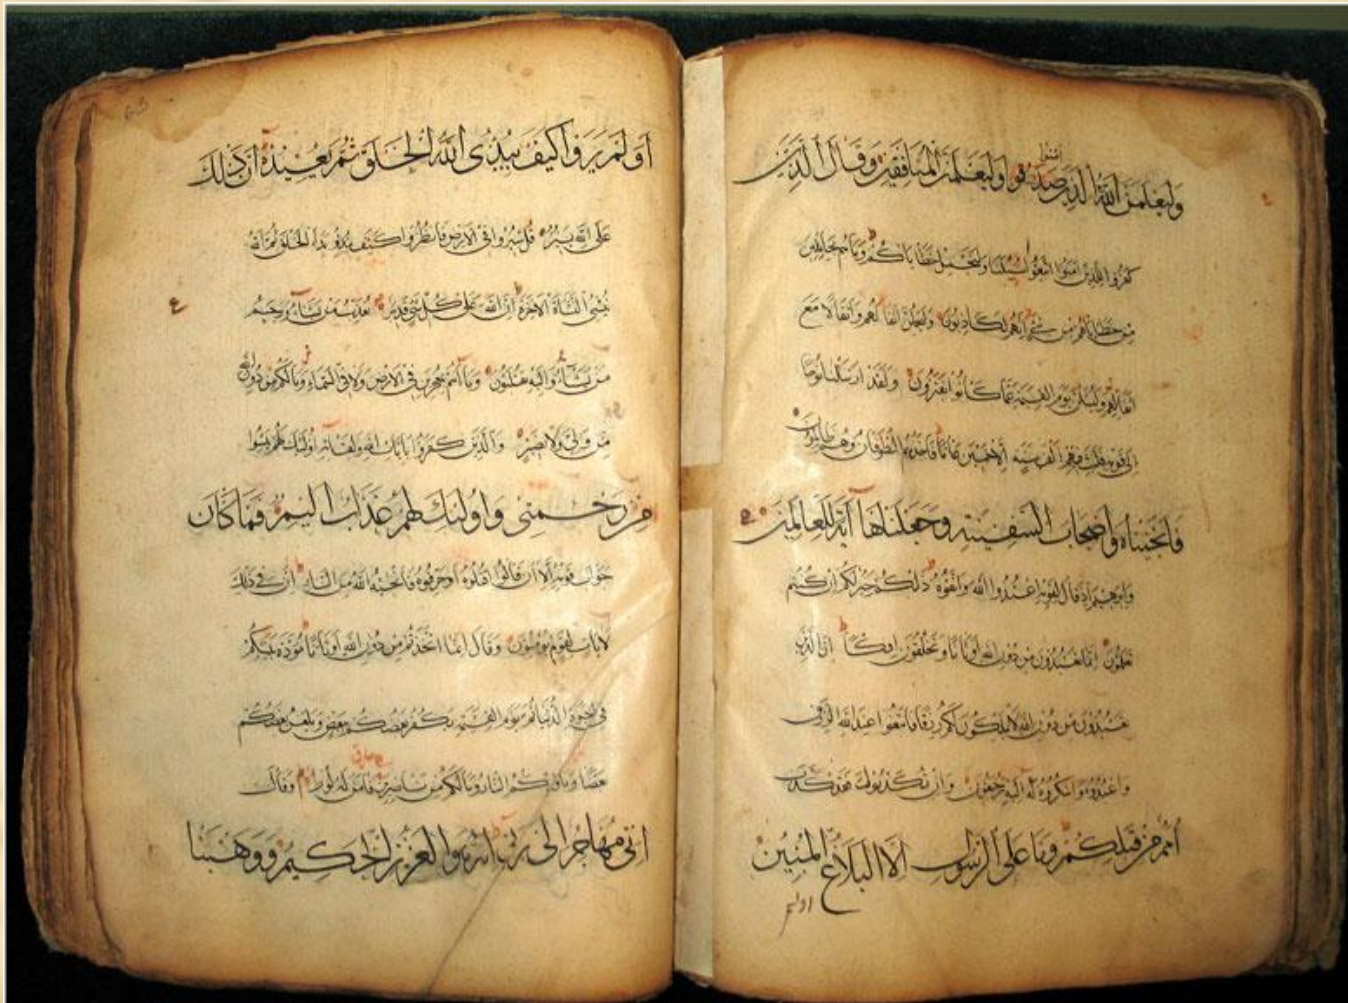 امنوا
وليعلمن الله الذين صدقوا وليعلمن المنافقين وقال الذين
كفروا للذين امنوا اتبعوا سبيلنا ولنحمل خطاياكم وما هم بحاملين
من خطاياهم من شئ انهم لكاذبون وليحملن اثقالهم واثقالا مع
اثقالهم وليسئلن يوم القيمة عما كانوا يفترون ولقد ارسلنا نوحا
الى قومه فلبث فيهم الف سنة الا خمسين عاما فاخذهم الطوفان وهم ظالمون
فانجيناه واصحاب السفينة وجعلناها آية للعالمين
وابرهيم اذ قال لقومه اعبدوا الله واتقوه ذلكم خير لكم ان كنتم
تعلمون انما تعبدون من دون الله اوثانا وتخلقون افكا ان الذين
تعبدون من دون الله لا يملكون لكم رزقا فابتغوا عند الله الرزق
واعبدوه واشكروا له اليه ترجعون وان تكذبوا فقد كذب
امم من قبلكم وما على الرسول الا البلاغ المبين
اولم
اولم يروا كيف يبدئ الله الخلق ثم يعيده ان ذلك
على الله يسير قل سيروا فى الارض فانظروا كيف بدأ الخلق ثم الله
ينشئ النشأة الاخرة ان الله على كل شئ قدير يعذب من يشاء ويرحم
من يشاء واليه تقلبون وما انتم بمعجزين فى الارض ولا فى السماء وما لكم من دون الله
من ولى ولا نصير والذين كفروا بايات الله ولقائه اولئك يئسوا
من رحمتى واولئك لهم عذاب اليم فما كان
جواب قومه الا ان قالوا اقتلوه او حرقوه فانجيه الله من النار ان فى ذلك
لايات لقوم يؤمنون وقال انما اتخذتم من دون الله اوثانا مودة بينكم
فى الحيوة الدنيا ثم يوم القيمة يكفر بعضكم ببعض ويلعن بعضكم
بعضا ومأويكم النار وما لكم من ناصرين فامن له لوط وقال
انى مهاجر الى ربى انه هو العزيز الحكيم ووهبنا